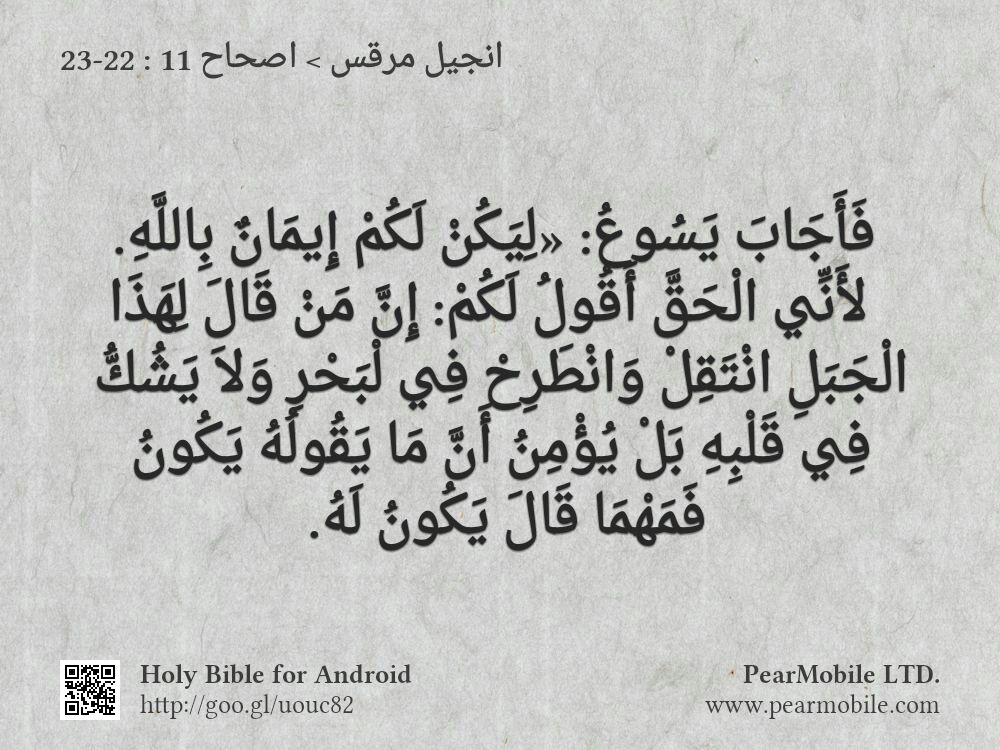 انجيل مرقس > اصحاح 11 : 22-23
فَأَجَابَ يَسُوعُ: «لِيَكُنْ لَكُمْ إِيمَانٌ بِاللَّهِ.
لأَنِّي الْحَقَّ أَقُولُ لَكُمْ: إِنَّ مَنْ قَالَ لِهَذَا
الْجَبَلِ انْتَقِلْ وَانْطَرِحْ فِي لْبَحْرِ وَلاَ يَشُكُّ
فِي قَلْبِهِ بَلْ يُؤْمِنُ أَنَّ مَا يَقُولُهُ يَكُونُ
فَمَهْمَا قَالَ يَكُونُ لَهُ.
Holy Bible for Android
http://goo.gl/uouc82
PearMobile LTD.
www.pearmobile.com